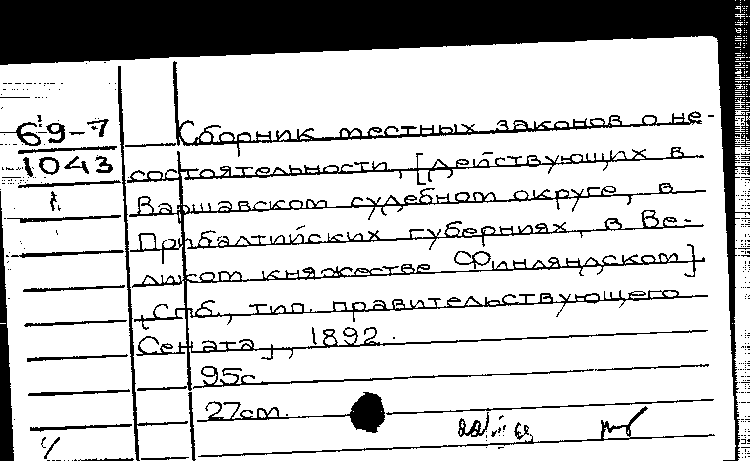 69-7
1043
Сборник местных законов о не-
состоятельности, [действующих в
Варшавском судебном округе, в
Прибалтийских губерниях, в Ве-
ликом княжестве Финляндском]
[Спб., тип. правительствующего
Сената], 1892.
95с.
27см.